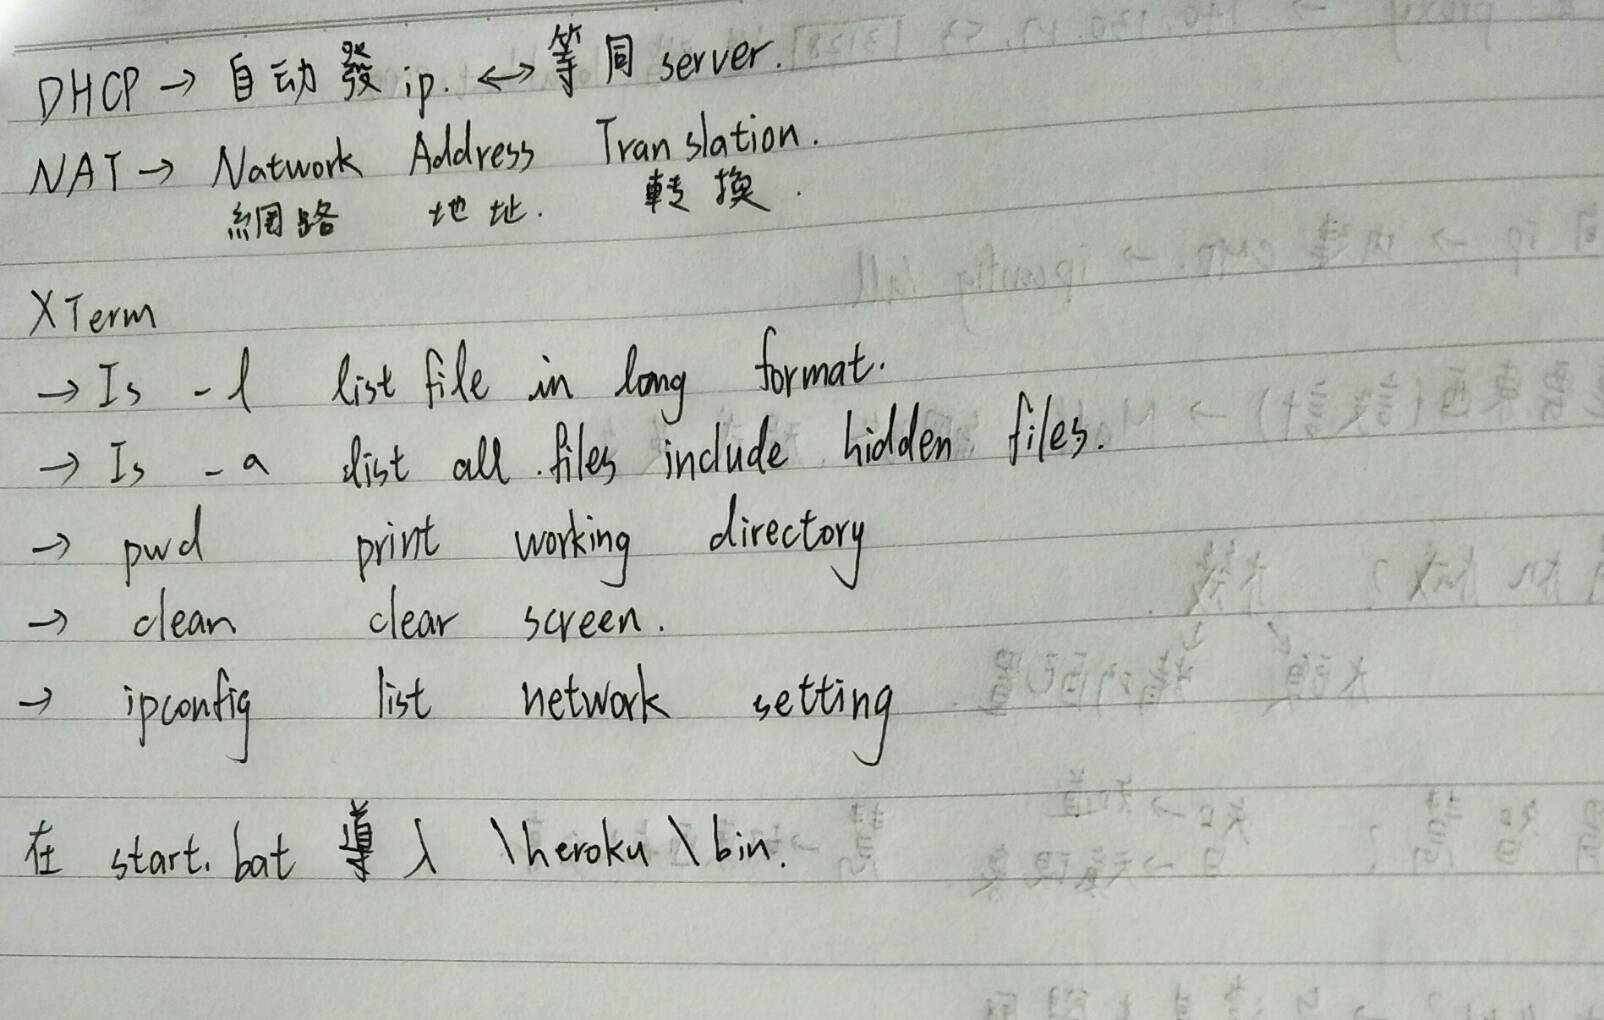 DHCP → 自动發 ip. ↔ 等同 server.
NAT → Natwork Address Translation.
網路 地址. 轉換.
XTerm
→ Is -l list file in long format.
→ Is -a list all files include hidden files.
→ pwd print working directory
→ clean clear screen.
→ ipconfig list network setting
在 start.bat 導入 \heroku\bin.